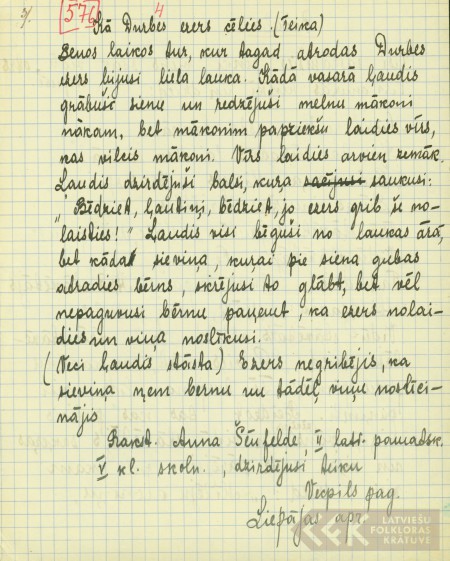 576
4
Kā Durbes ezers cēlies. (Teika)
Senos laikos tur, kur tagad atrodas Durbes
ezers bijusi liela lauka. Kādā vasarā ļaudis
grābuši sienu un redzējuši melnu mākoni
nākam, bet mākonim papriekšu laidies vīrs,
kas vilcis mākoni. Vīrs laidies arvien zemāk.
Ļaudis dzirdējuši balsi, kuŗa sacījusi saukusi:
"Bēdziet, ļautiņi, bēdziet, jo ezers grib še no-
laisties!" Ļaudis visi bēguši no laukas ārā,
bet kāda sieviņa, kuŗai pie siena gubas
atradies bērns, skrējusi to glābt, bet vēl
nepaguvusi bērnu paņemt, ka ezers nolai-
dies un viņa noslīkusi.
(Veci ļaudis stāsta) Ezers negribējis, ka
sieviņa ņem bērnu un tādēļ viņu noslīci-
nājis
Rakst. Anna Šēnfelde, II latv. pamatsk.
V kl. skoln., dzirdējusi teiku
Vecpils pag.
Liepājas apr.
LATVIEŠU
FOLKLORAS
KRĀTUVE